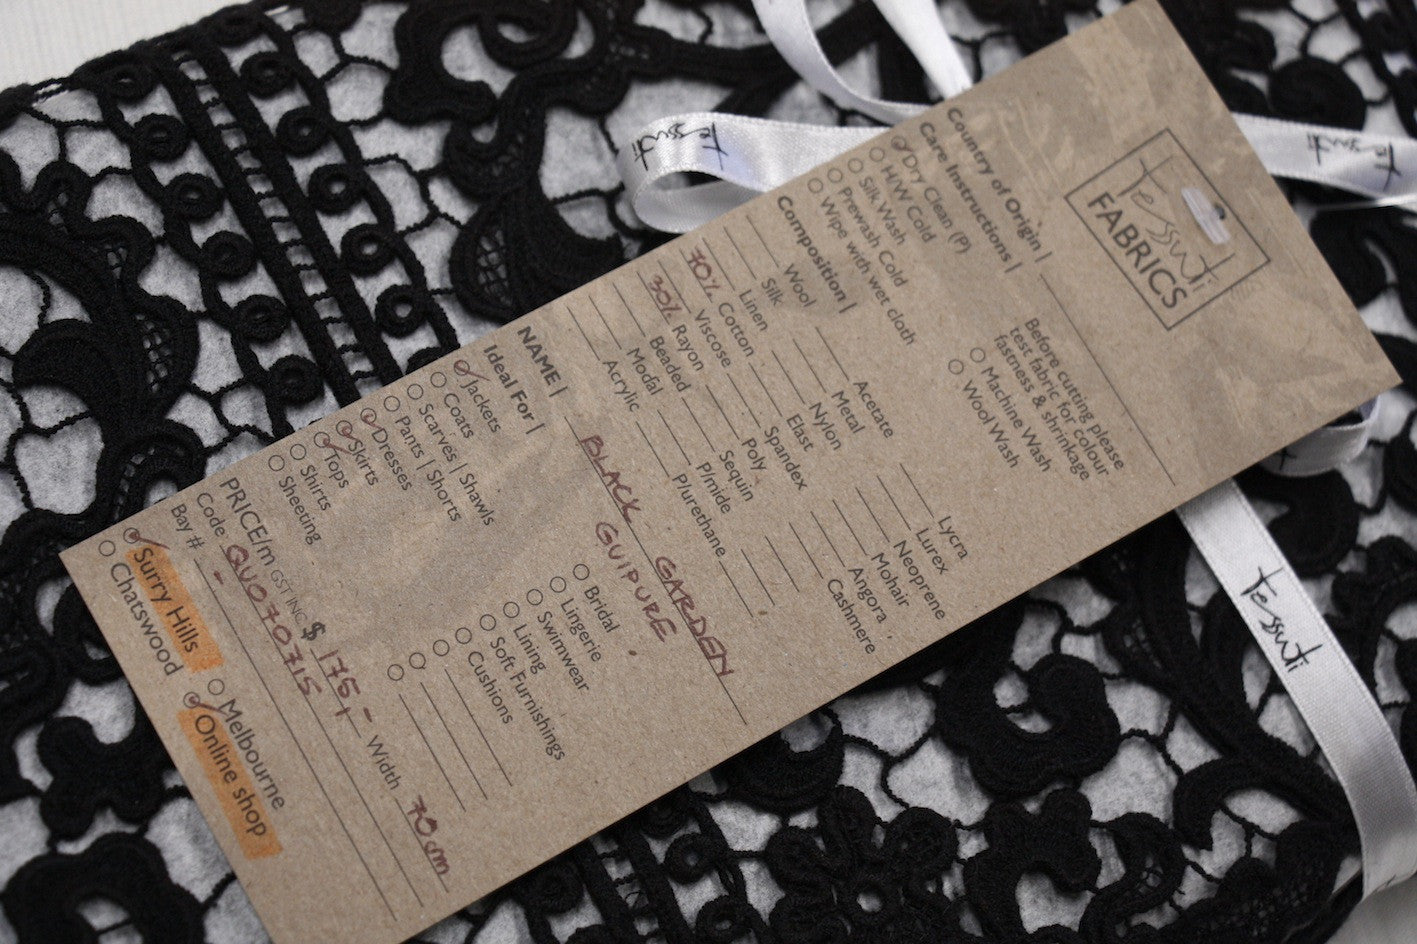 Tessuti
FABRICS
Country of Origin |
Care Instructions |
Dry Clean (P)
H/W Cold
Silk Wash
Prewash Cold
Wipe with wet cloth
Before cutting please
test fabric for colour
fastness & shrinkage
Machine Wash
Wool Wash
Composition |
Wool
Silk
Linen
70% Cotton
Viscose
30% Rayon
Beaded
Modal
Acrylic
Acetate
Metal
Nylon
Elast
Spandex
Poly
Sequin
P/mide
P/urethane
Lycra
Lurex
Neoprene
Mohair
Angora
Cashmere
NAME | BLACK GARDEN
GUIPURE.
Ideal For |
Jackets
Coats
Scarves | Shawls
Pants | Shorts
Dresses
Skirts
Tops
Shirts
Sheeting
Bridal
Lingerie
Swimwear
Lining
Soft Furnishings
Cushions
PRICE/m GST INC $ 175- Width 70cm
Code QU070715
Bay # -
Surry Hills
Chatswood
Melbourne
Online shop
Tessuti
Tessuti
Tessuti
Tessuti